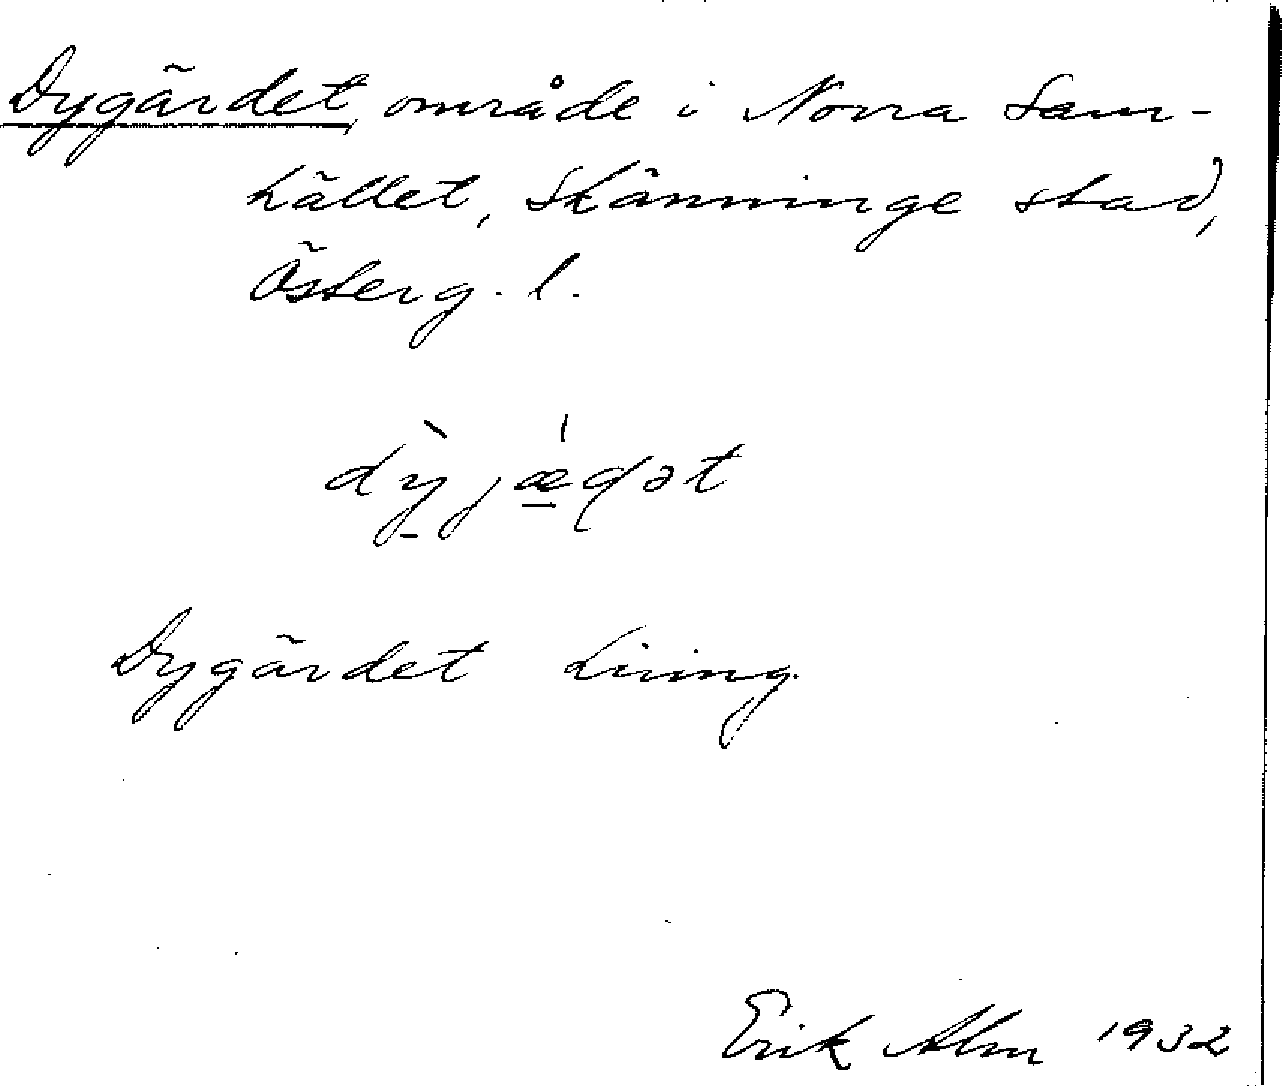 Dygärdet, område i Norra Sam-
hället, Skänninge stad,
Österg. l.
dỳjæ̀dət
Dygärdet Liring.
Erik Alm 1932